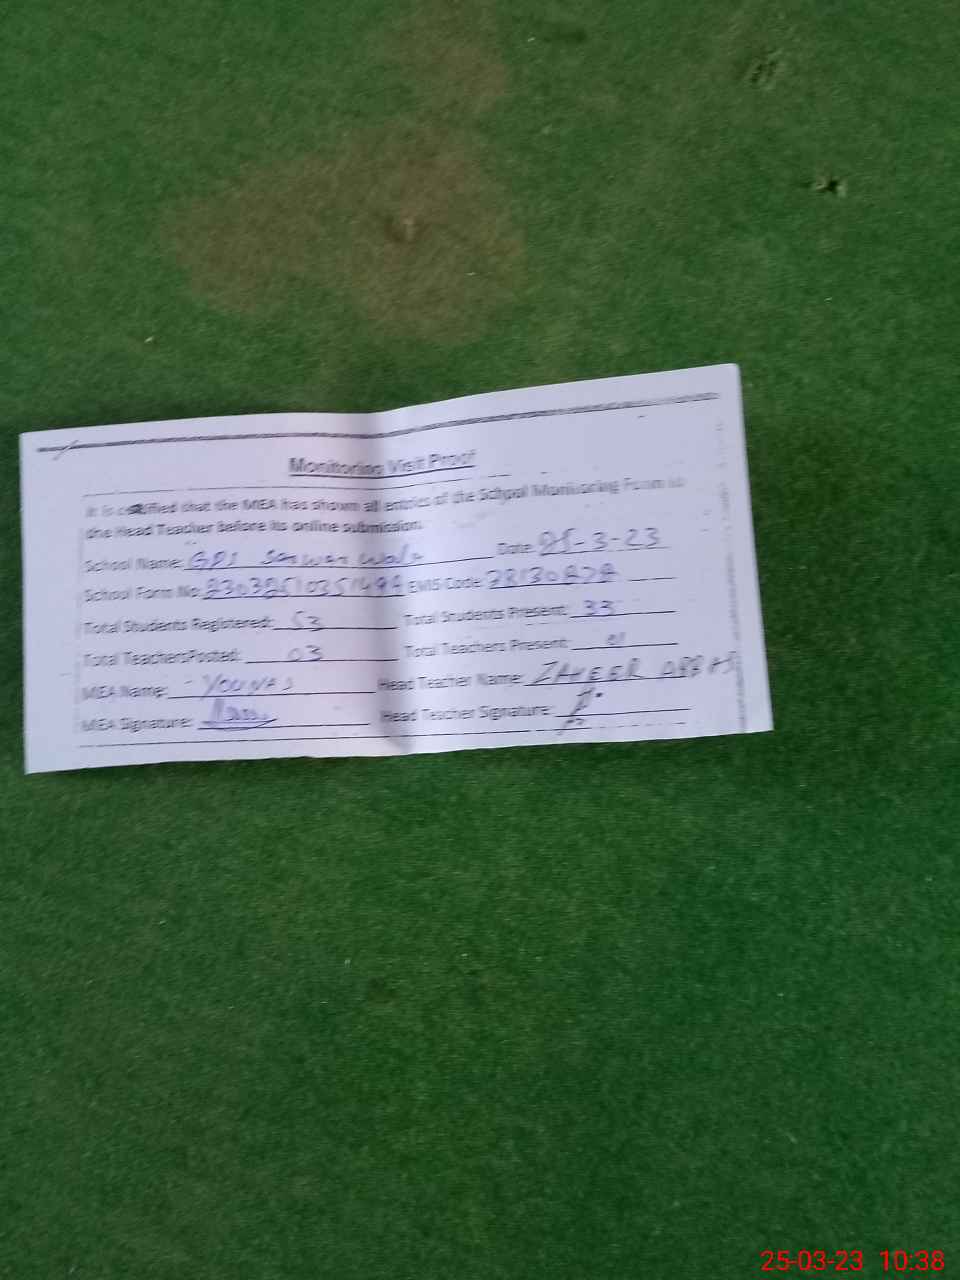 Monitoring Visit Proof
It is certified that the MEA has shown all entries of the School Monitoring Form to
the Head Teacher before its online submission.
School Name: GPS Date: 25-3-23
School Form No: EMIS Code:
Total Students Registered: 53 Total Students Present: 33
Total TeachersPosted: 03 Total Teachers Present: 01
MEA Name: YOUNAS Head Teacher Name: ZAHEER ABBAS
MEA Signature: Head Teacher Signature:
25-03-23 10:38